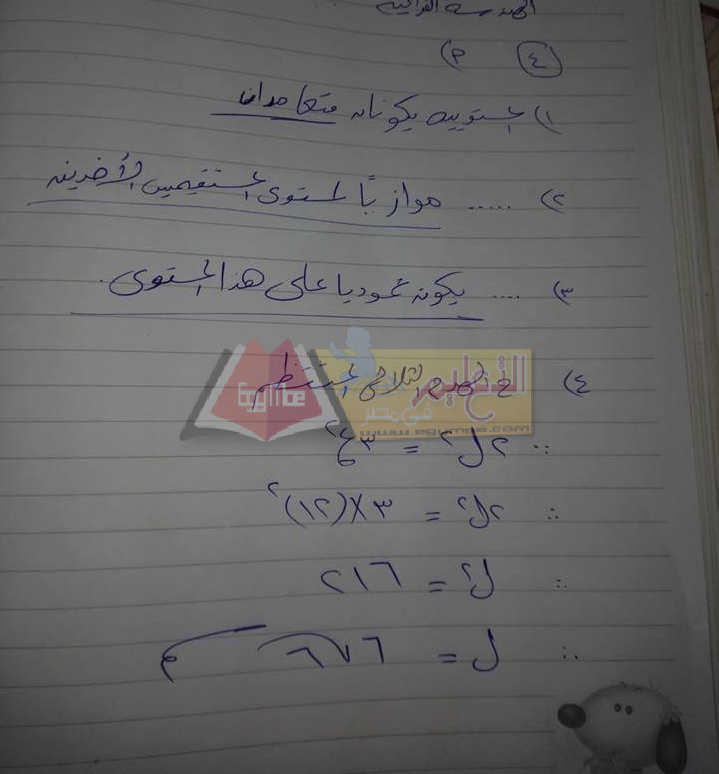 الهندسة الفراغية
٤ ٢)
١) المستويين يكونان متعامدان
٢) ..... موازياً لمستوى المستقيمين الأخرين
٣) .... يكون عموديا على هذا المستوى.
٤) في الهرم الثلاثي المنتظم
∵ ٢ل٢ = ٣ع٢
∴ ٢ل٢ = ٣×(١٢)٢
∴ ل٢ = ٢١٦
∴ ل = ٦√٦ سم
التعليم
في مصر
egline
www.eglimee.com